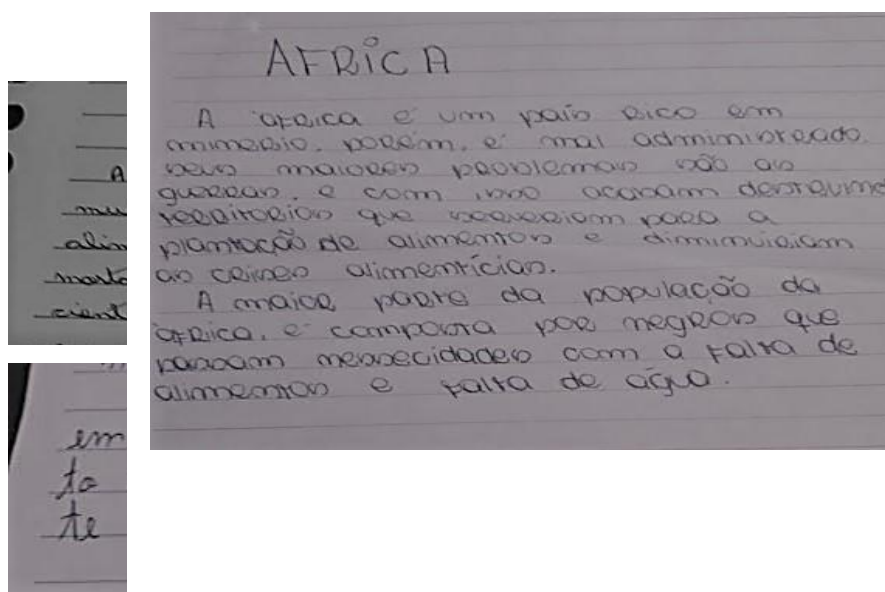 AFRICA
A africa e um país rico em
minerio, porém, e' mal administrado.
seus maiores problemas são as
guerras, e com isso acabam destruindo
territorios que serveriam para a
plantação de alimentos e diminuiriam
as crises alimentícias.
A maior parte da população da
africa, e' composta por negros que
passam nessecidades com a falta de
alimentos e falta de água.
A
mu
alim
mort
cient
em
ta
te